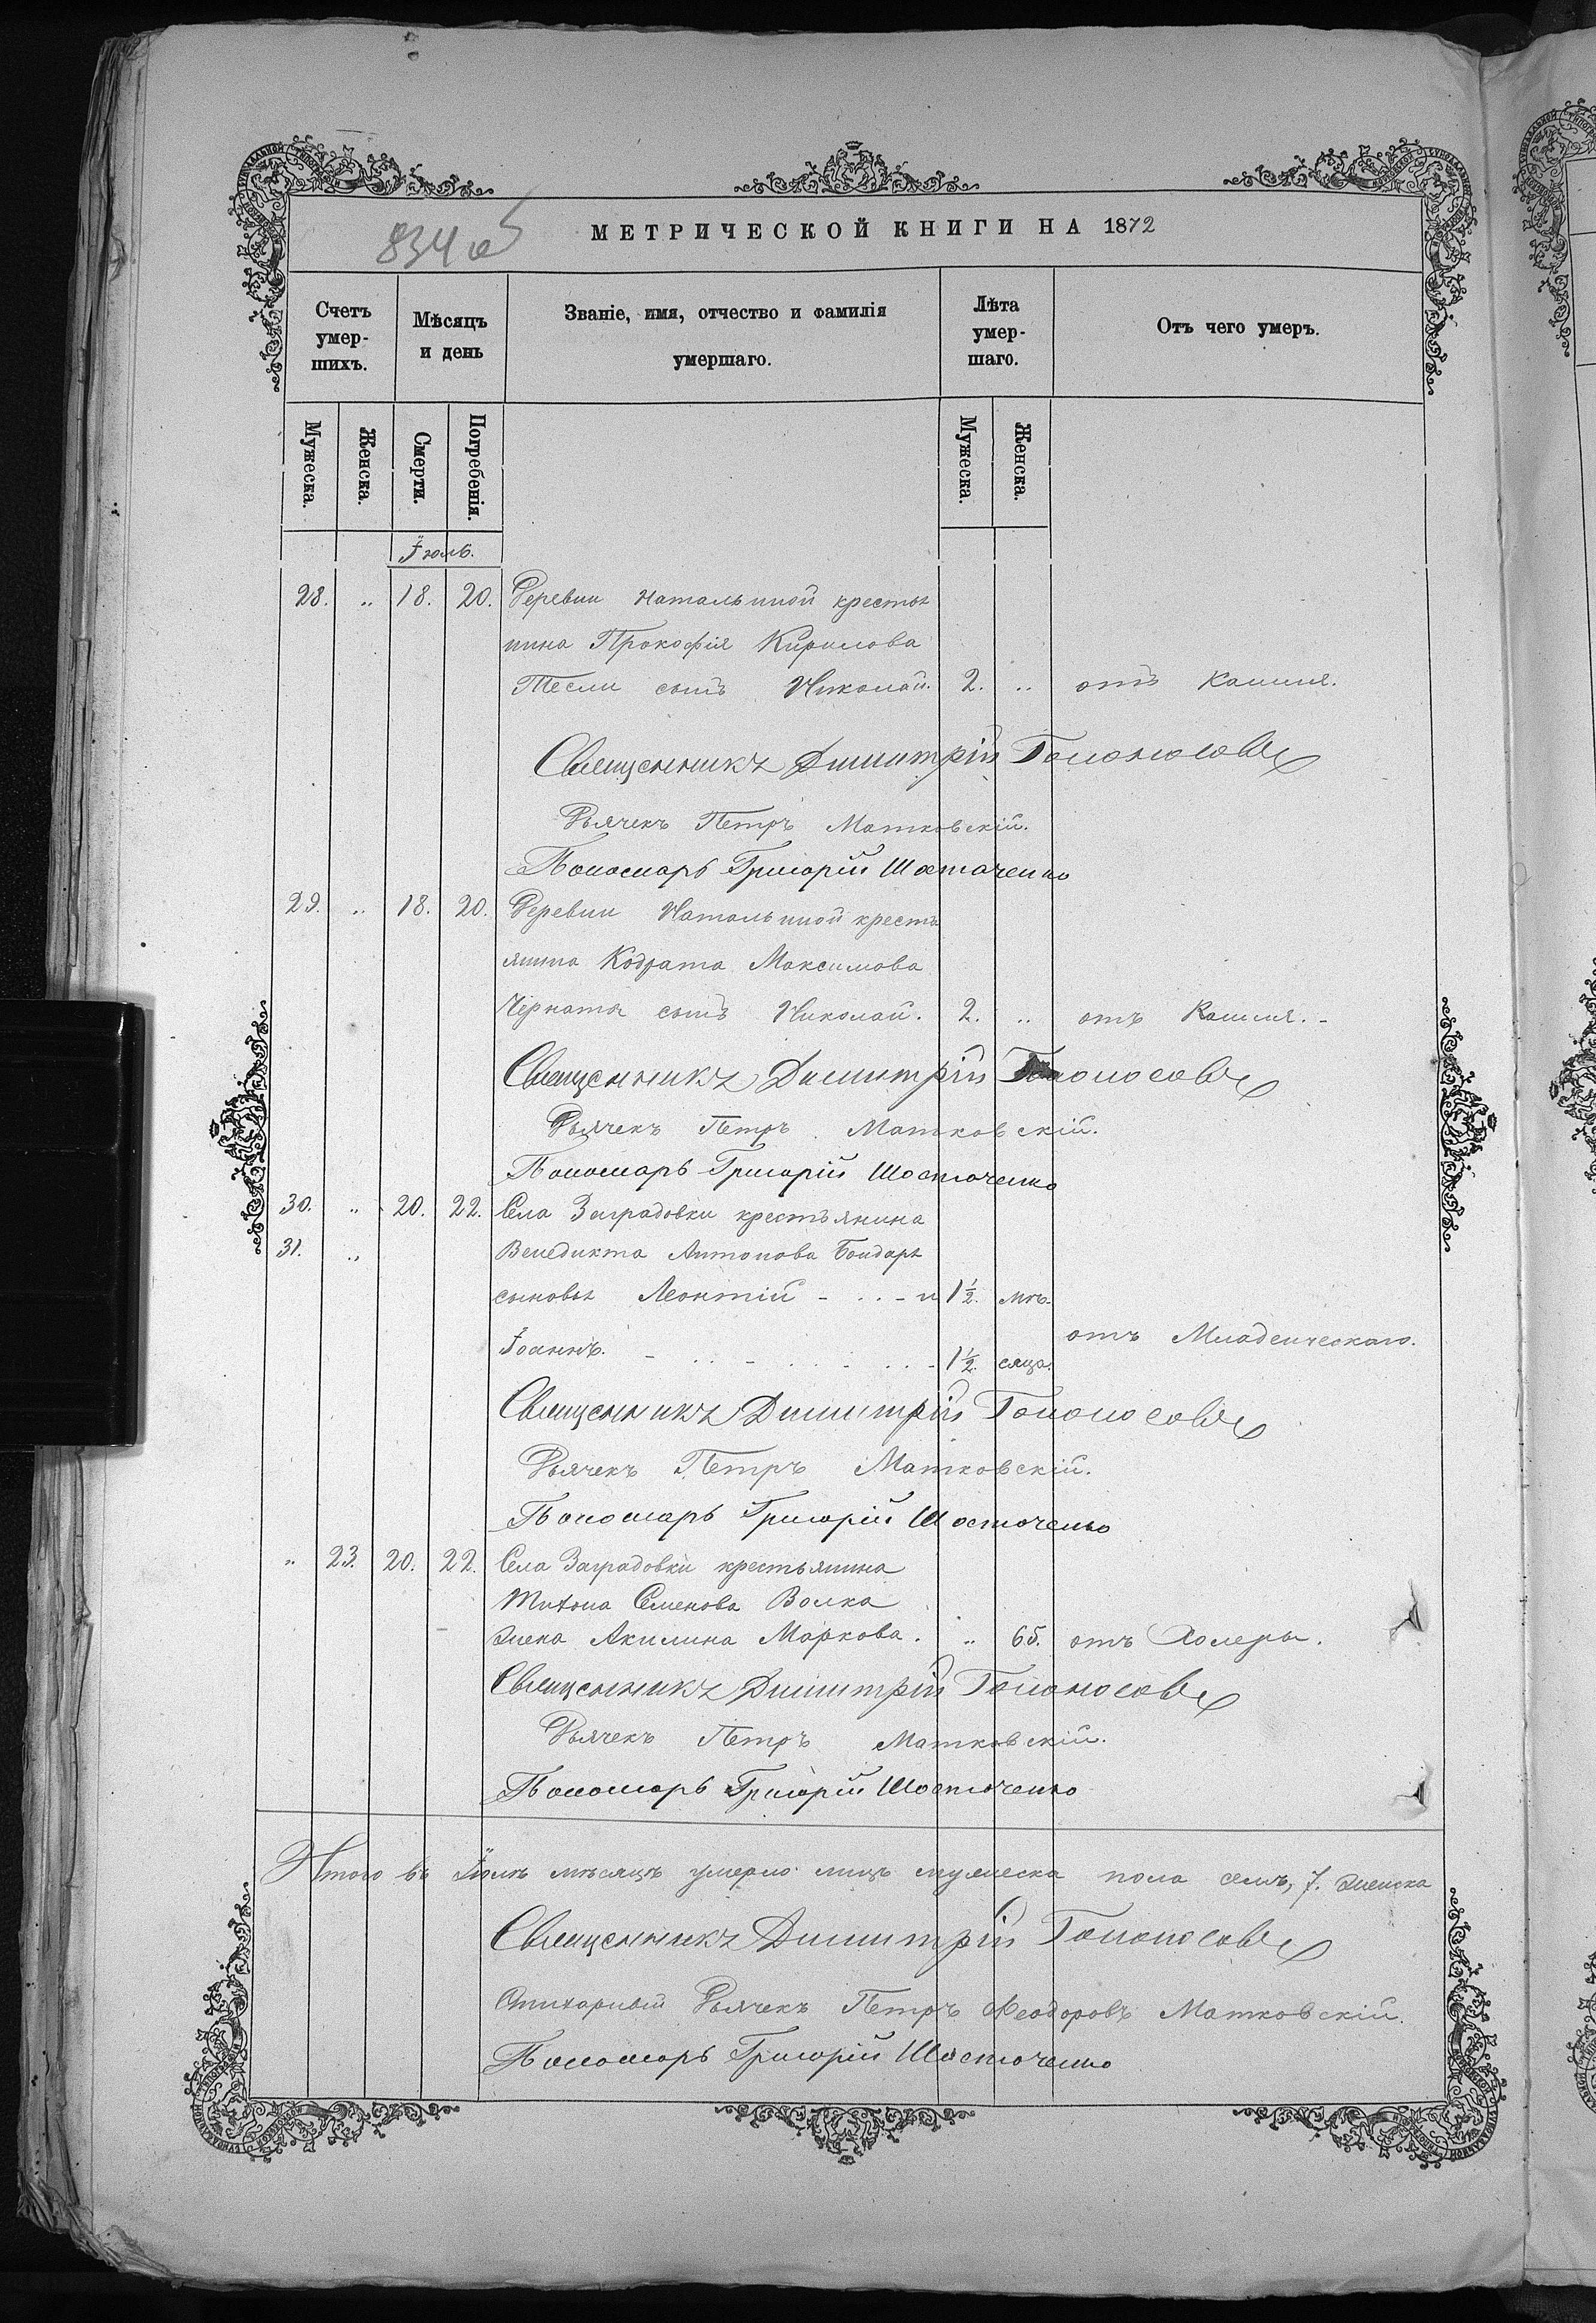 834 об
МЕТРИЧЕСКОЙ КНИГИ НА 1872
Счетъ умер-шихъ.
Мѣсяцъ и день
Званіе, имя, отчество и фамилія умершаго.
Лѣта умер-шаго.
Отъ чего умеръ.
Мужеска.
Женска.
Смерти.
Погребенія.
Мужеска.
Женска.
Іюль.
28. „ 18. 20. Деревни Натальиной крестья
нина Прокофія Кирилова
Тесли сынъ Николай. 2. „ отъ Кашля.
Священникъ Димитрій Голоносовъ
Дьячекъ Петръ Матковскій.
Пономарь Григорій Шостаченко
29. „ 18. 20. Деревни Натальиной кресть
янина Кодрата Максимова
Черната сынъ Николай. 2. „ отъ Кашля. -
Священникъ Димитрій Голоносовъ
Дьячекъ Петръ Матковскій.
Пономарь Григорій Шостаченко
30. „ 20. 22. Села Заградовки крестьянина
31. „ Венедикта Антонова Бондаря
сыновья Леонтій - .. - и 1½. мѣ-
отъ Младенческаго.
Іоаннъ. - .. - .. - .. - 1½. сяца.
Священникъ Димитрій Голоносовъ
Дьячекъ Петръ Матковскій.
Пономарь Григорій Шостаченко
„ 23. 20. 22. Села Заградовки крестьянина
Тихона Семенова Волка
жена Акилина Маркова. „ 65. отъ Холеры.
Священникъ Димитрій Голоносовъ
Дьячекъ Петръ Матковскій.
Пономарь Григорій Шостаченко
Итого въ Іюлѣ мѣсяцѣ умерло лицъ мужеска пола семь, 7. женска
Священникъ Димитрій Голоносовъ
Стихарный Дьячекъ Петръ Феодоровъ Матковскій.
Пономарь Григорій Шостаченко